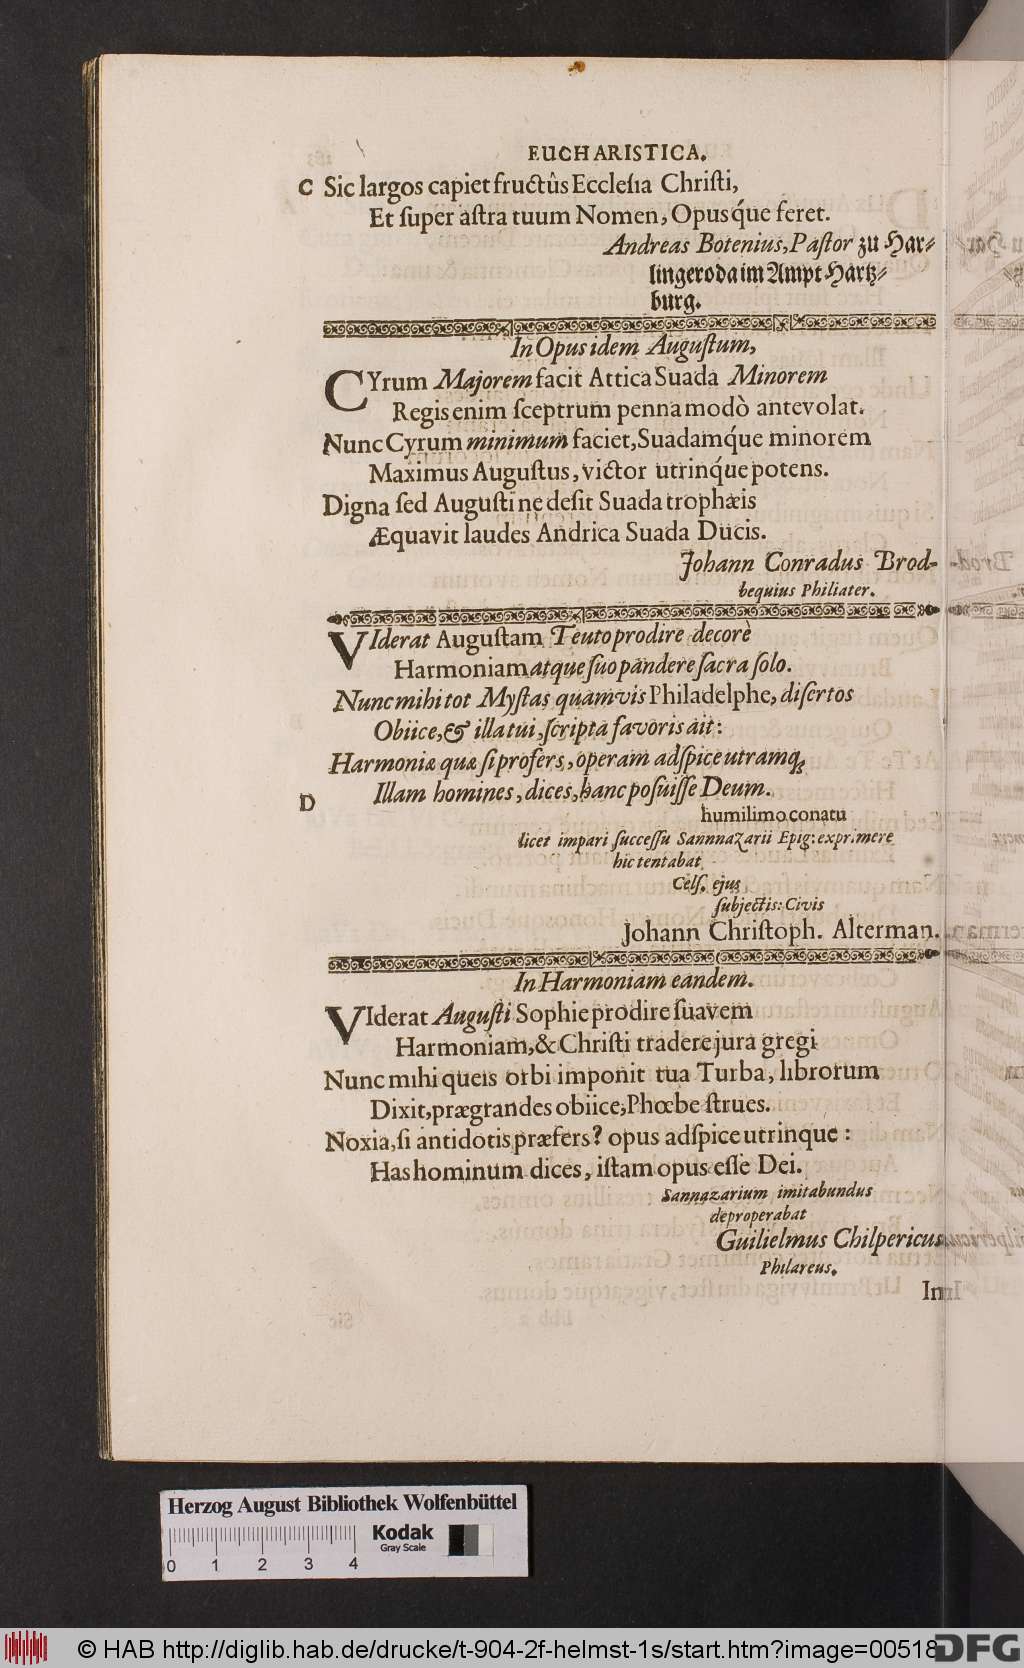 EUCHARISTICA.
C Sic largos capiet fructûs Ecclesia Christi,
Et ſuper aſtra tuum Nomen, Opusq́ue feret.
Andreas Botenius, Paſtor zu Har⸗
lingeroda im Ampt Hartz⸗
burg.
In Opus idem Auguſtum,
CYrum Majorem facit Attica Suada Minorem
Regis enim ſceptrum penna modò antevolat.
Nunc Cyrum minimum faciet, Suadamq́ue minorem
Maximus Auguſtus, victor utrinq́ue potens.
Digna ſed Auguſti ne deſit Suada trophæis
Æquavit laudes Andrica Suada Ducis.
Johann Conradus Brod-
bequius Philiater.
VIderat Auguſtam Teuto prodire decorè
Harmoniam atque ſuo pandere ſacra ſolo.
Nunc mihi tot Myſtas quamvis Philadelphe, diſertos
Obiice, & illa tui, ſcripta favoris ait:
Harmoniæ quæ ſi profers, operam adſpice utramq;
D Illam homines, dices, hanc poſuiſſe Deum.
humilimo conatu
licet impari ſucceſſu Sannnazarii Epig: expr.mere
hic tentabat
Celſ. ejus
ſubjectis: Civis
Johann Chriſtoph. Alterman.
In Harmoniam eandem.
VIderat Auguſti Sophie prodire ſuavem
Harmoniam, & Chriſti tradere jura gregi
Nunc mihi queis orbi imponit tua Turba, librorum
Dixit, prægrandes obiice, Phœbe ſtrues.
Noxia, ſi antidotis præfers? opus adſpice utrinque:
Has hominum dices, iſtam opus eſſe Dei.
Sannazarium imitabundus
deproperabat
Guilielmus Chilpericus
Philareus.
In
Herzog August Bibliothek Wolfenbüttel
Kodak
Gray Scale
0 1 2 3 4
© HAB http://diglib.hab.de/drucke/t-904-2f-helmst-1s/start.htm?image=00518
DFG